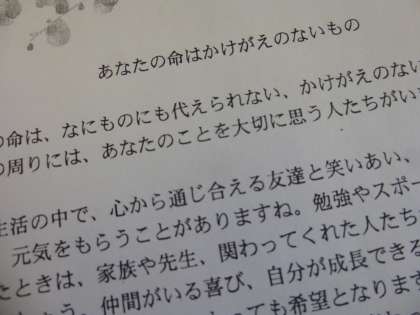 あなたの命はかけがえのないもの
の命は、なにものにも代えられない、かけがえのない
の周りには、あなたのことを大切に思う人たちがい
生活の中で、心から通じ合える友達と笑いあい、
元気をもらうことがありますね。勉強やスポー
たときは、家族や先生、関わってくれた人たち
う。仲間がいる喜び、自分が成長できる
ても希望となります